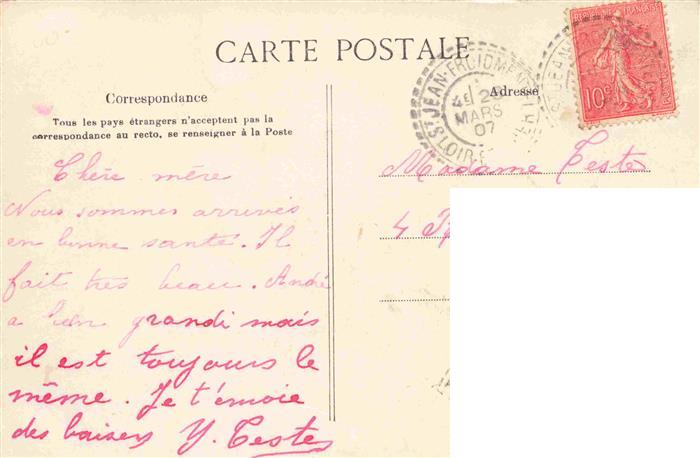 CARTE POSTALE
Correspondance
Tous les pays étrangers n'acceptent pas la
correspondance au recto, se renseigner à la Poste
Adresse
Chère mère
Nous sommes arrivés
en bonne santé. Il
fait très beau. André
a bien grandi mais
il est toujours le
même. Je t'envoie
des baisers Y. Teste
Madame Teste
4
ST JEAN-FROIDMENTEL
4E 2
MARS
07
LOIR-
10c